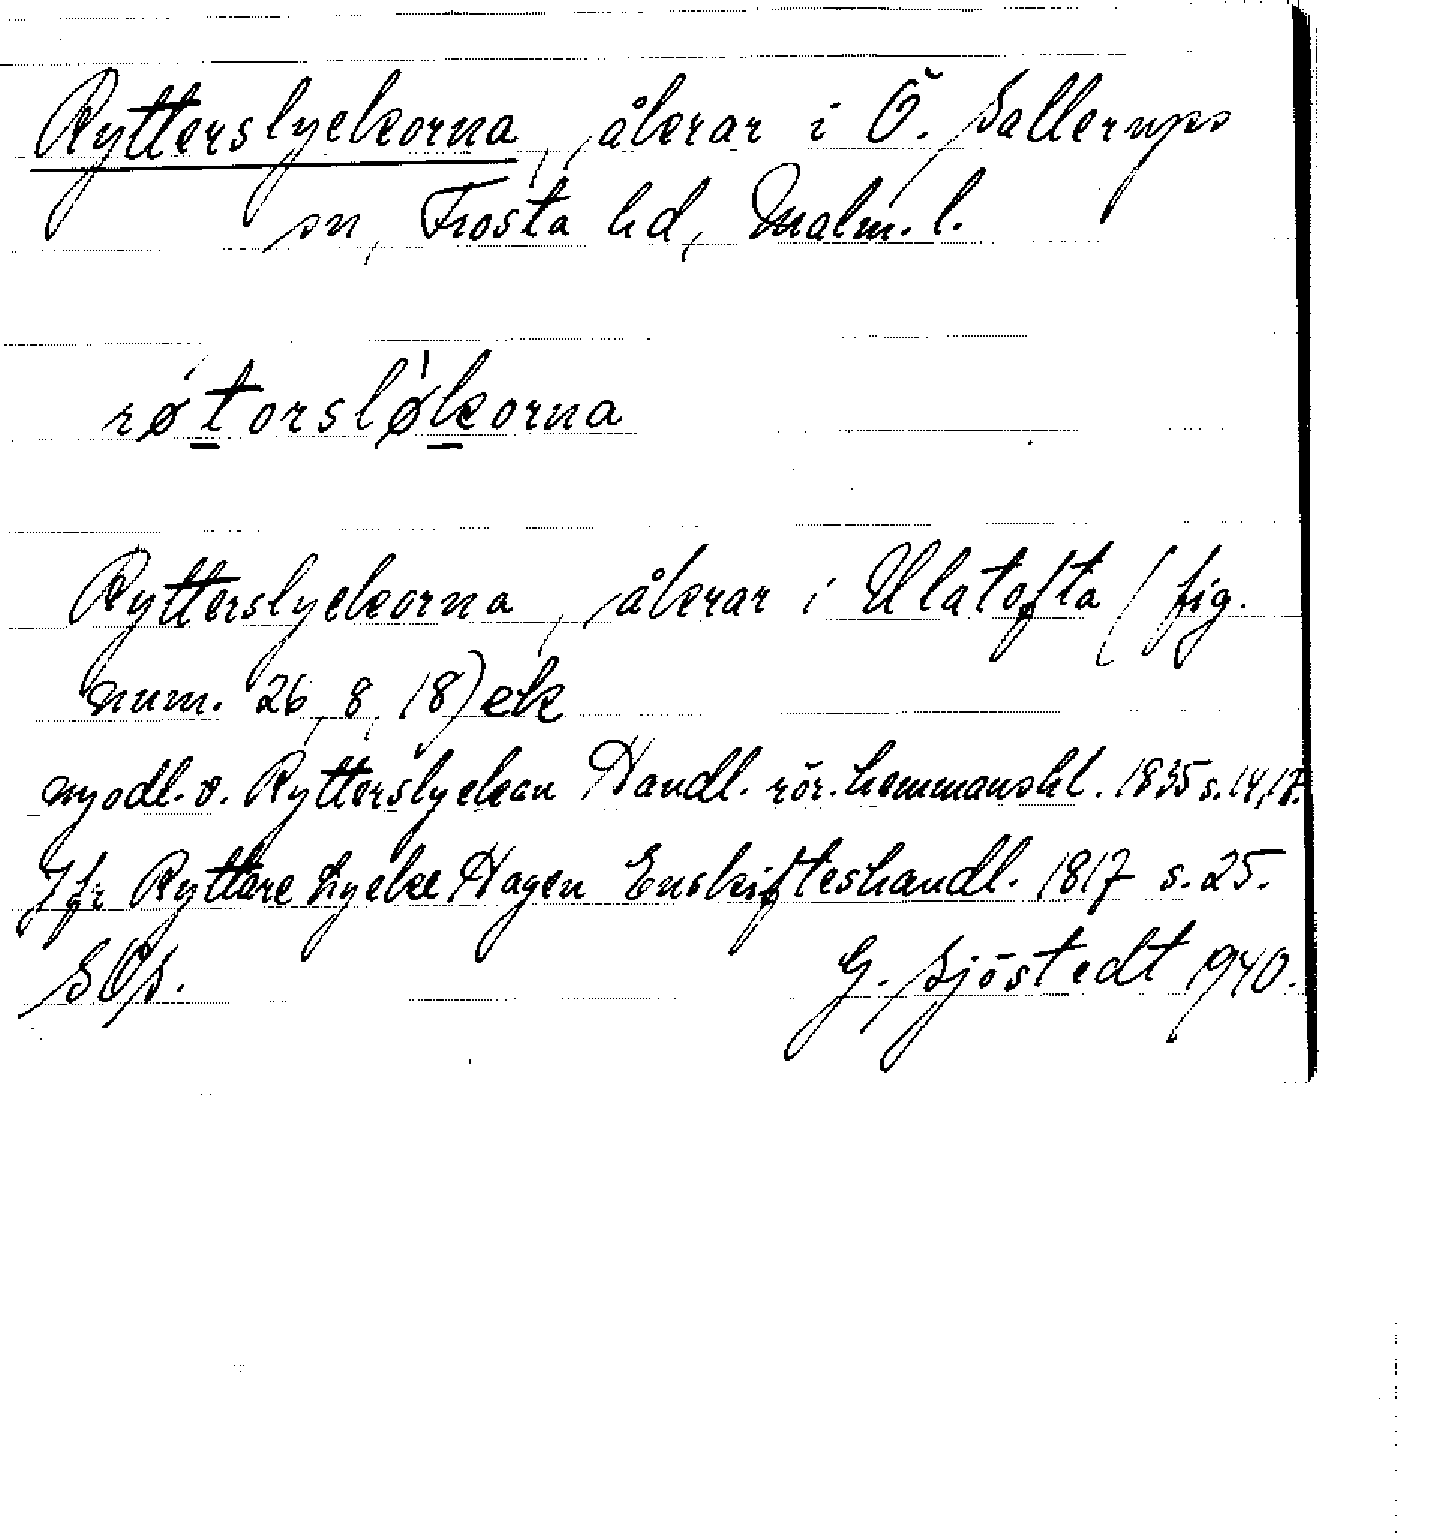 Rytterslyckorna, åkrar i Ö. Sallerups
sn, Frosta hd, Malm. l.
røtorsløkorna
Rytterslyckorna, åkrar i Ulatofta (fig.
num. 26, 8, 18) ek
nyodl. v. Rytterslyckan Handl. rör. hemmanskl. 1835 s. 14, 18.
Jfr Ryttare Lycke Hagen Enskifteshandl. 1817 s. 25.
SOp. G. Sjöstedt 1940.